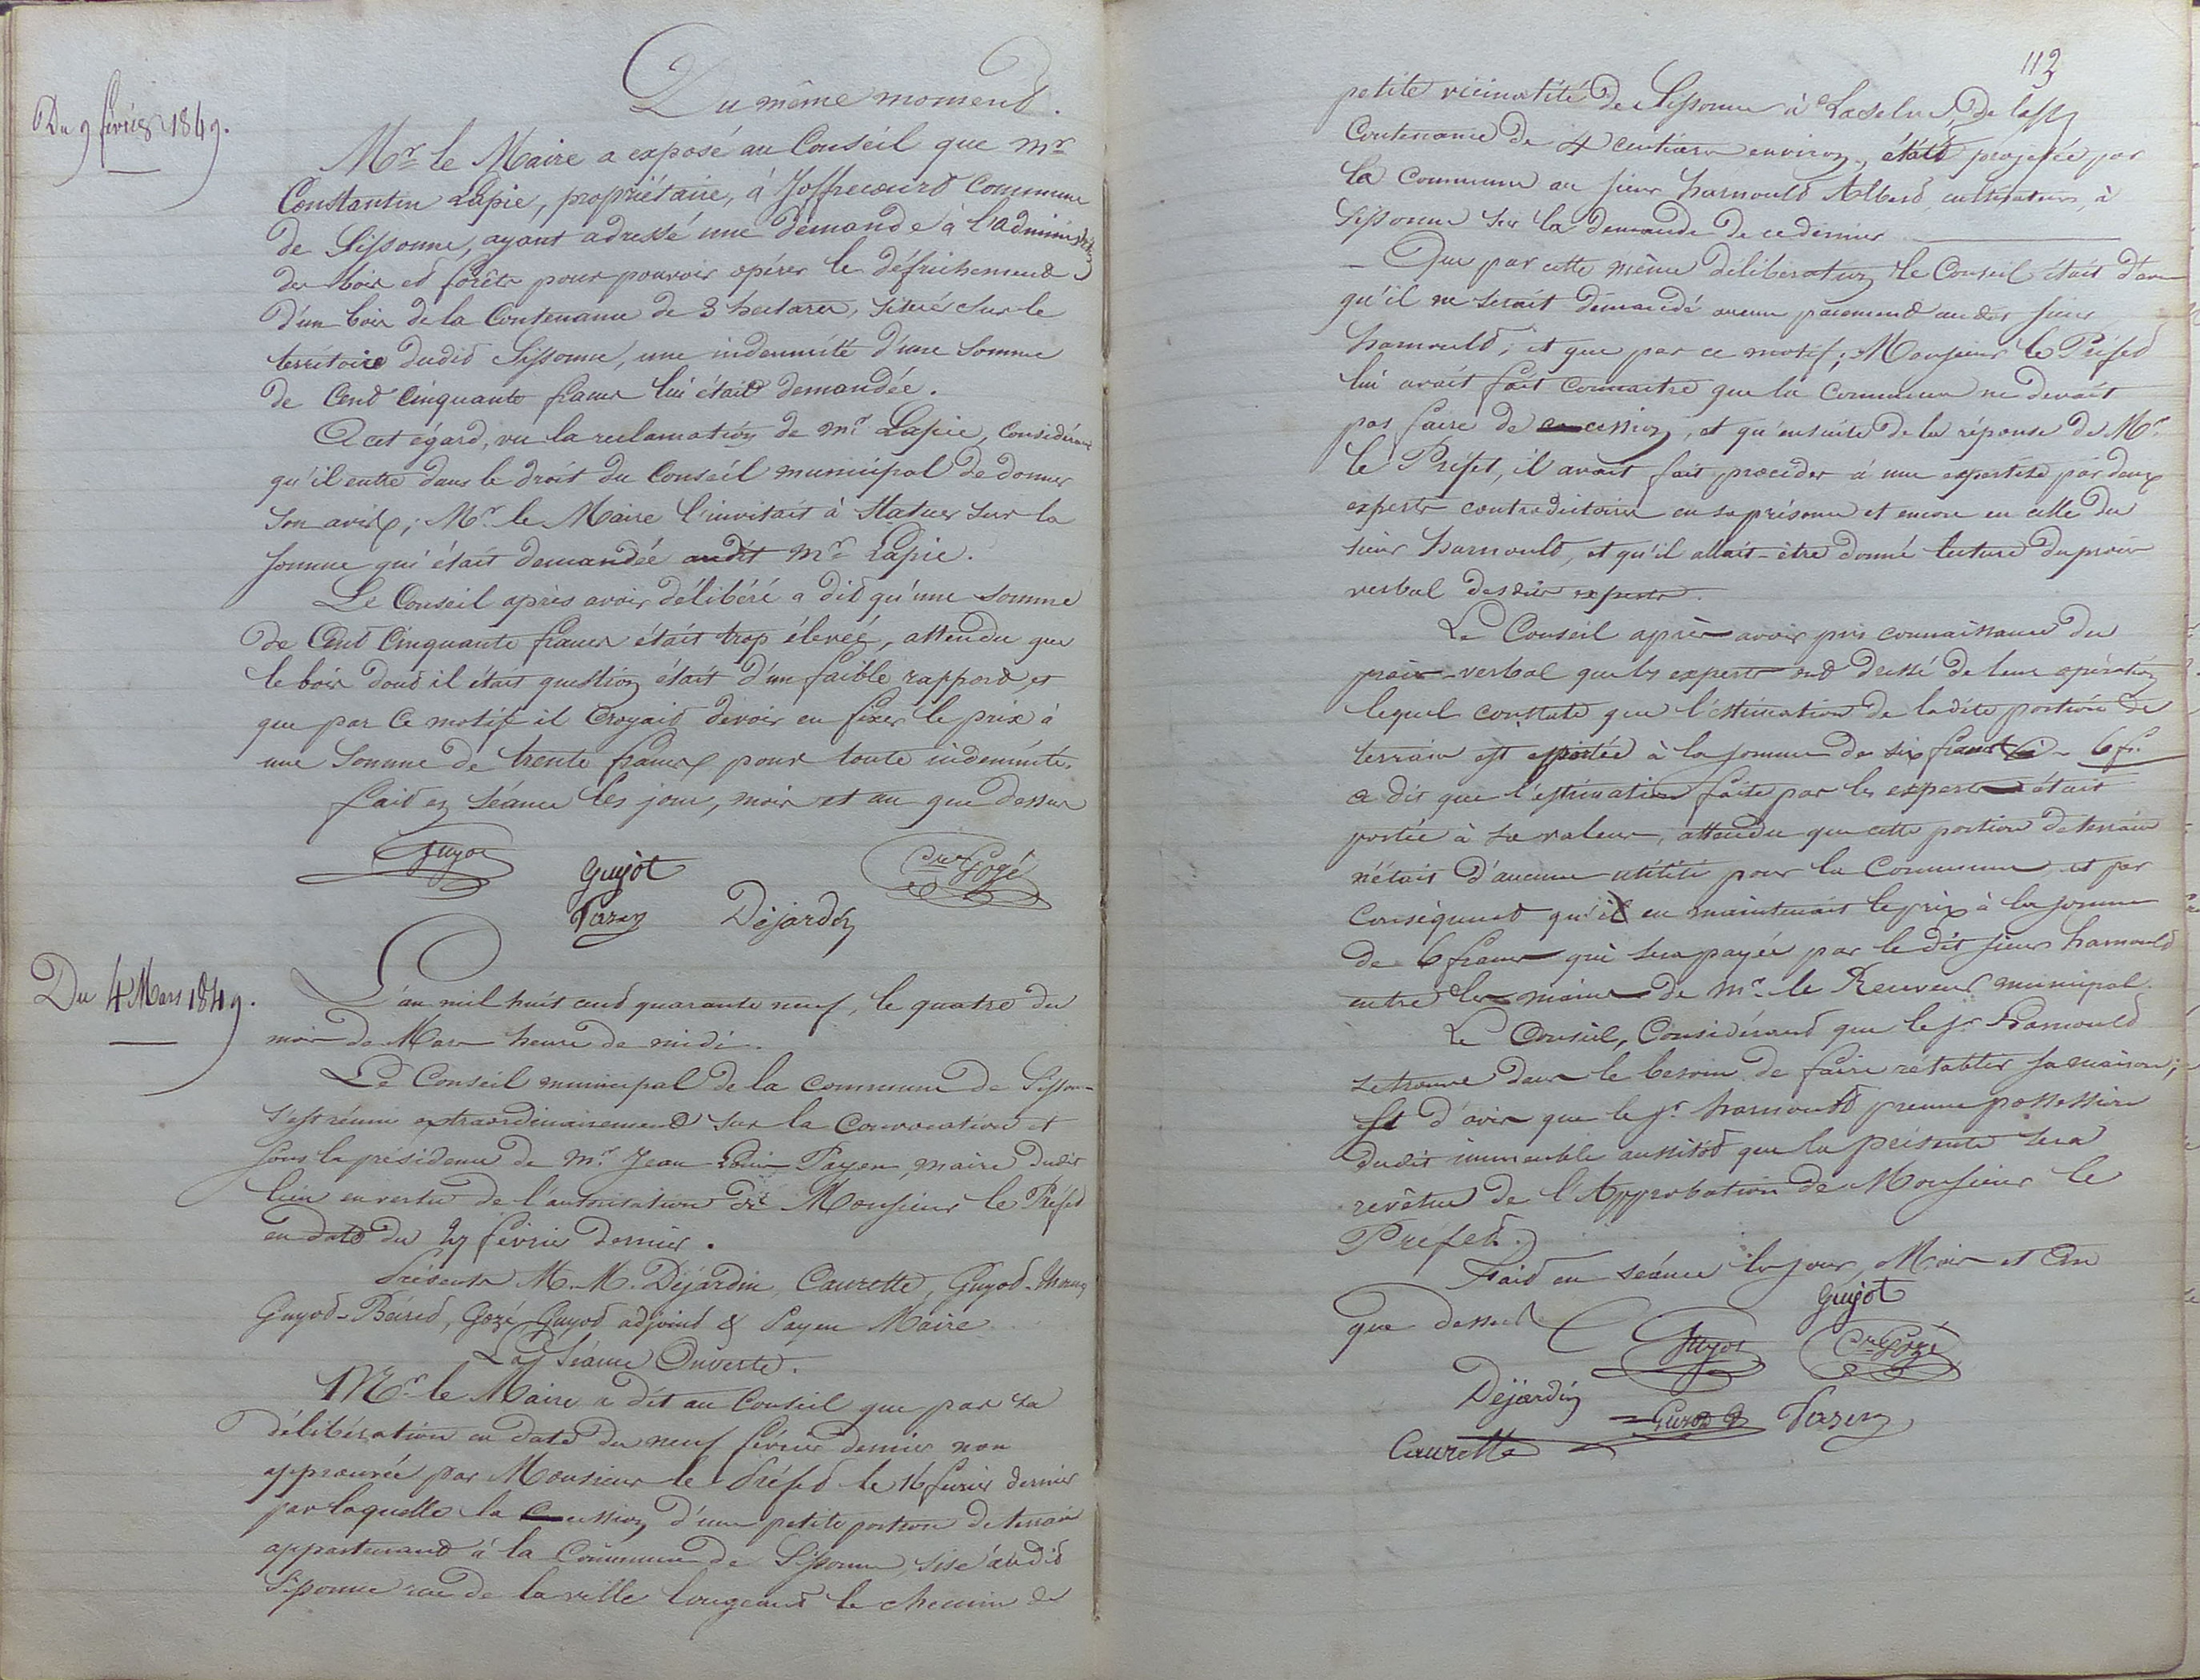 Du 9 février 1849.
Du même moment.
Mr. le Maire a exposé au Conseil que mr
Constantin Lapie, propriétaire, à Joffrecourt commune
de Sissonne, ayant adressé une demande à l'administration
des bois et forêts pour pouvoir opérer le défrichement
d'un bois de la Contenance de 3 hectares, situé sur le
territoire dudit Sissonne, une indemnité d'une somme
de Cent Cinquante francs lui était demandée.
A cet égard, vu la réclamation de mr. Lapie, Considérant
qu'il entre dans le droit du Conseil municipal de donner
son avis; Mr. le Maire l'invitait à statuer sur la
somme qui était demandée audit Mr. Lapie.
Le Conseil après avoir délibéré a dit qu'une somme
de Cent Cinquante francs était trop élevée, attendu que
le bois dont il était question était d'un faible rapport, et
que par ce motif il croyait devoir en fixer le prix à
une Somme de trente francs pour toute indemnité.
fait en séance les jour, mois et an que dessus
Guyot Guyot Gozé
Payen Déjardin
Du 4 Mars 1849.
L'an mil huit cent quarante neuf, le quatre du
mois de Mars heure de midi.
Le Conseil municipal de la commune de Sissonne
s'est réuni extraordinairement sur la Convocation et
sous la présidence de mr. Jean Louis Payen, maire dudit
lieu en vertu de l'autorisation de Monsieur le Préfet
en date du 27 février dernier.
Présents M. M. Déjardin, Caurette, Guyot-
Guyot-, Gozé, Guyot adjoint & Payen Maire
La Séance Ouverte.
Mr. le Maire a dit au Conseil que par sa
délibération en date du neuf février dernier non
approuvée par Monsieur le Préfet le 16 février dernier
par laquelle la cession d'une petite portion de terrain
appartenant à la Commune de Sissonne, sise audit
Sissonne rue de la ville longeant le chemin de
112
petite vicinalité de Sissonne à Laselve, de la
Contenance de 4 centiares environ, était projetée par
la Commune au sieur harnould Albert cultivateur, à
Sissonne sur la demande de ce dernier
- Que par cette même délibération le Conseil était d'avis
qu'il ne serait demandé aucun paiement audit sieur
harnould; et que par ce motif; Monsieur le Préfet
lui avait fait connaitre que la Commune ne devait
pas faire de cession, et qu'ensuite de la réponse de Mr.
le Préfet, il avait fait procéder à une expertise par deux
experts contradictoires en sa présence et encore en celle du
sieur harnould, et qu'il allait-être donné lecture du procès
verbal desdits experts.
Le Conseil après avoir pris connaissance du
procès-verbal que les experts ont dressé de leur opération
lequel constate que l'estimation de ladite portion de
terrain est portée à la somme de six francs ci - 6 fr.
a dit que l'estimation faite par les experts était
portée à sa valeur, attendu que cette portion de terrain
n'était d'aucune utilité pour la Commune, et par
Conséquent qu'il en maintenait le prix à la somme
de 6 francs qui sera payée par le dit sieur harnould
entre les mains de Mr. le Receveur municipal.
Le Conseil, Considérant que le Sr. harnould
se trouve dans le besoin de faire rétablir sa maison;
Est d'avis que le Sr. harnould prenne possession
dudit immeuble aussitôt que la présente sera
revêtue de l'Approbation de Monsieur le
Préfet.
Fait en séance les jour, Mois et An
que dessus
Guyot
Guyot Gozé
Déjardin
Guyot Payen
Caurette